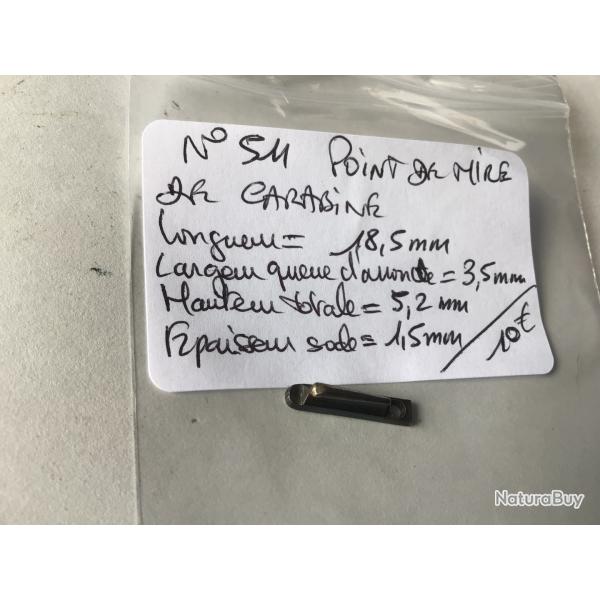 N° 511 POINT DE MIRE
DE CARABINE
Longueur = 18,5 mm
Largeur queue d'aronde = 3,5mm
Hauteur totale = 5,2 mm
Epaisseur socle = 1,5mm / 10€
NaturaBuy